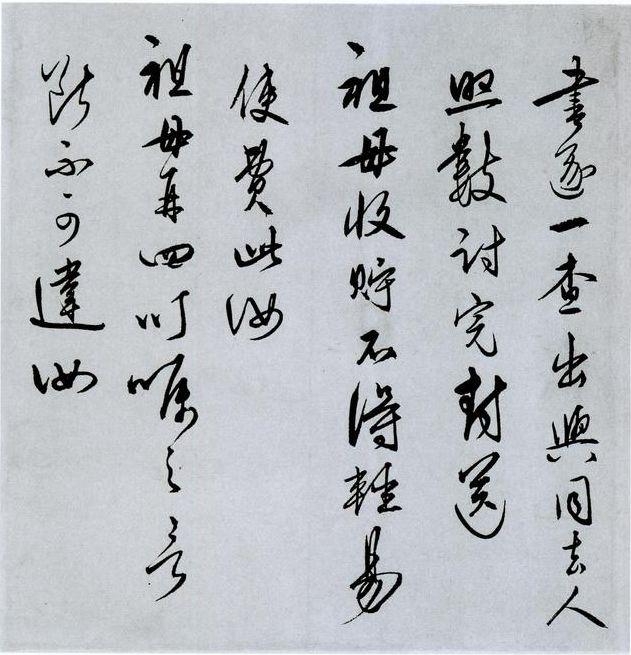 書逐一查出與同去人
照數討完封送
祖母收貯不得輕易
使費此汝
祖母再四叮嘱之言
斷不可違汝